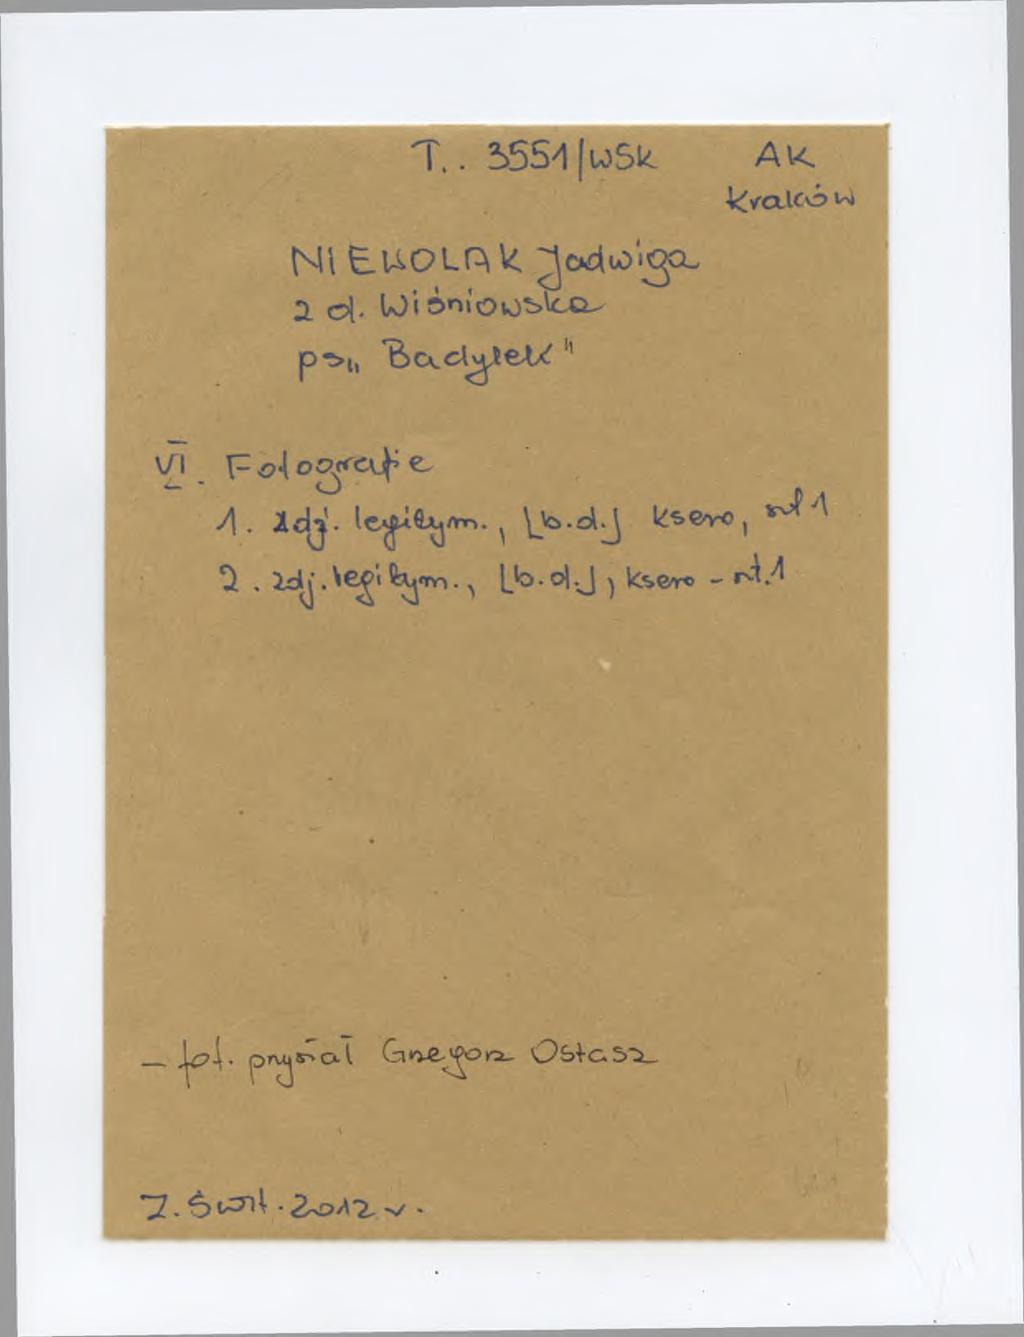 T.. 3551/WSK AK
Kraków
NIEWOLAK Jadwiga
z d. Wiśniowska
ps„ Badylek"
VI. Fotografie
1. zdj. legitym., [b.d.] ksero, szt 1
2. zdj. legitym., [b.d.], ksero - szt. 1
- fot. przysłał Grzegorz Ostasz
2012 r.